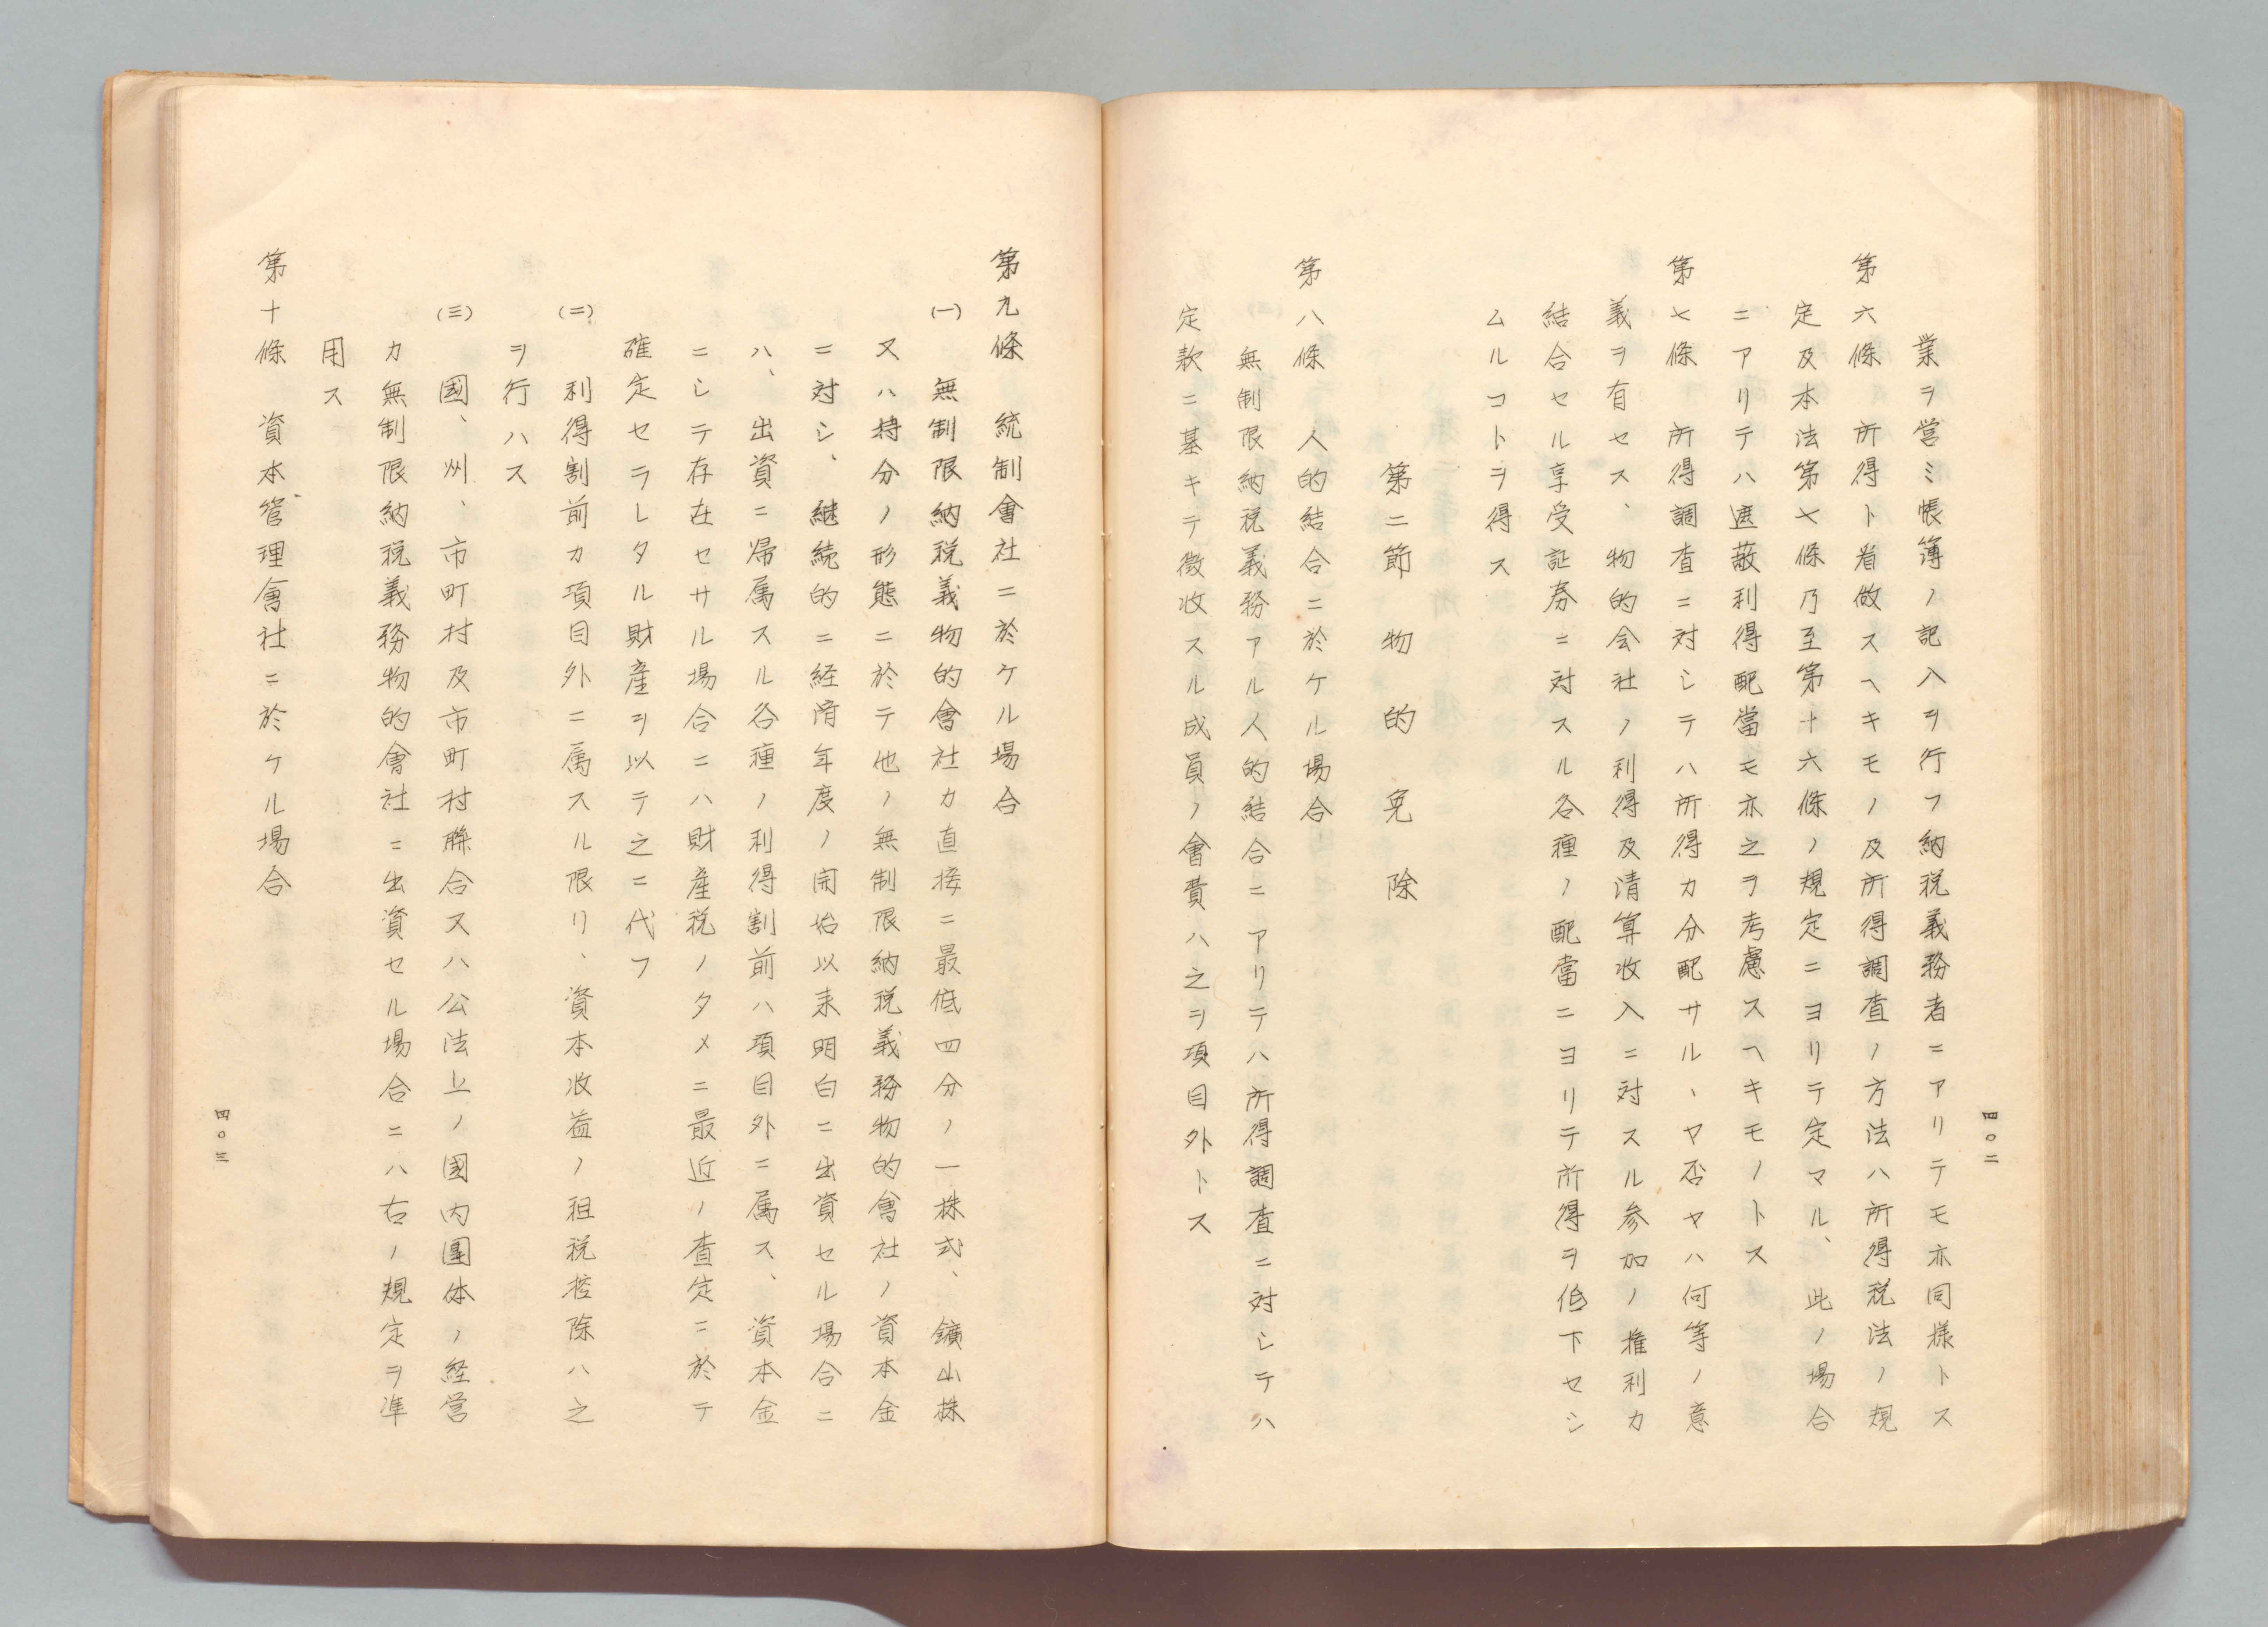 業ヲ営ミ帳簿ノ記入ヲ行フ納税義務者ニアリテモ亦同様トス
第六條　所得ト看做スヘキモノ及所得調査ノ方法ハ所得税法ノ規
定及本法第七條乃至第十六條ノ規定ニヨリテ定マル、此ノ場合
ニアリテハ遮蔽利得配當モ亦之ヲ考慮スヘキモノトス
第七條　所得調査ニ対シテハ所得カ分配サルヽヤ否ヤハ何等ノ意
義ヲ有セス、物的会社ノ利得及清算收入ニ対スル参加ノ権利カ
結合セル享受証券ニ対スル各種ノ配當ニヨリテ所得ヲ低下セシ
ムルコトヲ得ス
第二節　物的免除
第八條　人的結合ニ於ケル場合
無制限納税義務アル人的結合ニアリテハ所得調査ニ対シテハ
定款ニ基キテ徴收スル成員ノ會費ハ之ヲ項目外トス
四〇二
第九條　統制會社ニ於ケル場合
(一)　無制限納税義務物的會社カ直接ニ最低四分ノ一株式、鑛山株
又ハ持分ノ形態ニ於テ他ノ無制限納税義務物的會社ノ資本金
ニ対シ、継続的ニ経済年度ノ開始以来明白ニ出資セル場合ニ
ハ、出資ニ帰属スル各種ノ利得割前ハ項目外ニ属ス、資本金
ニシテ存在セサル場合ニハ財産税ノタメニ最近ノ査定ニ於テ
確定セラレタル財産ヲ以テ之ニ代フ
(二)　利得割前カ項目外ニ属スル限リ、資本收益ノ租税控除ハ之
ヲ行ハス
(三)　國、州、市町村及市町村聯合又ハ公法上ノ國内團体ノ経営
カ無制限納税義務物的會社ニ出資セル場合ニハ右ノ規定ヲ準
用ス
第十條　資本管理會社ニ於ケル場合
四〇三